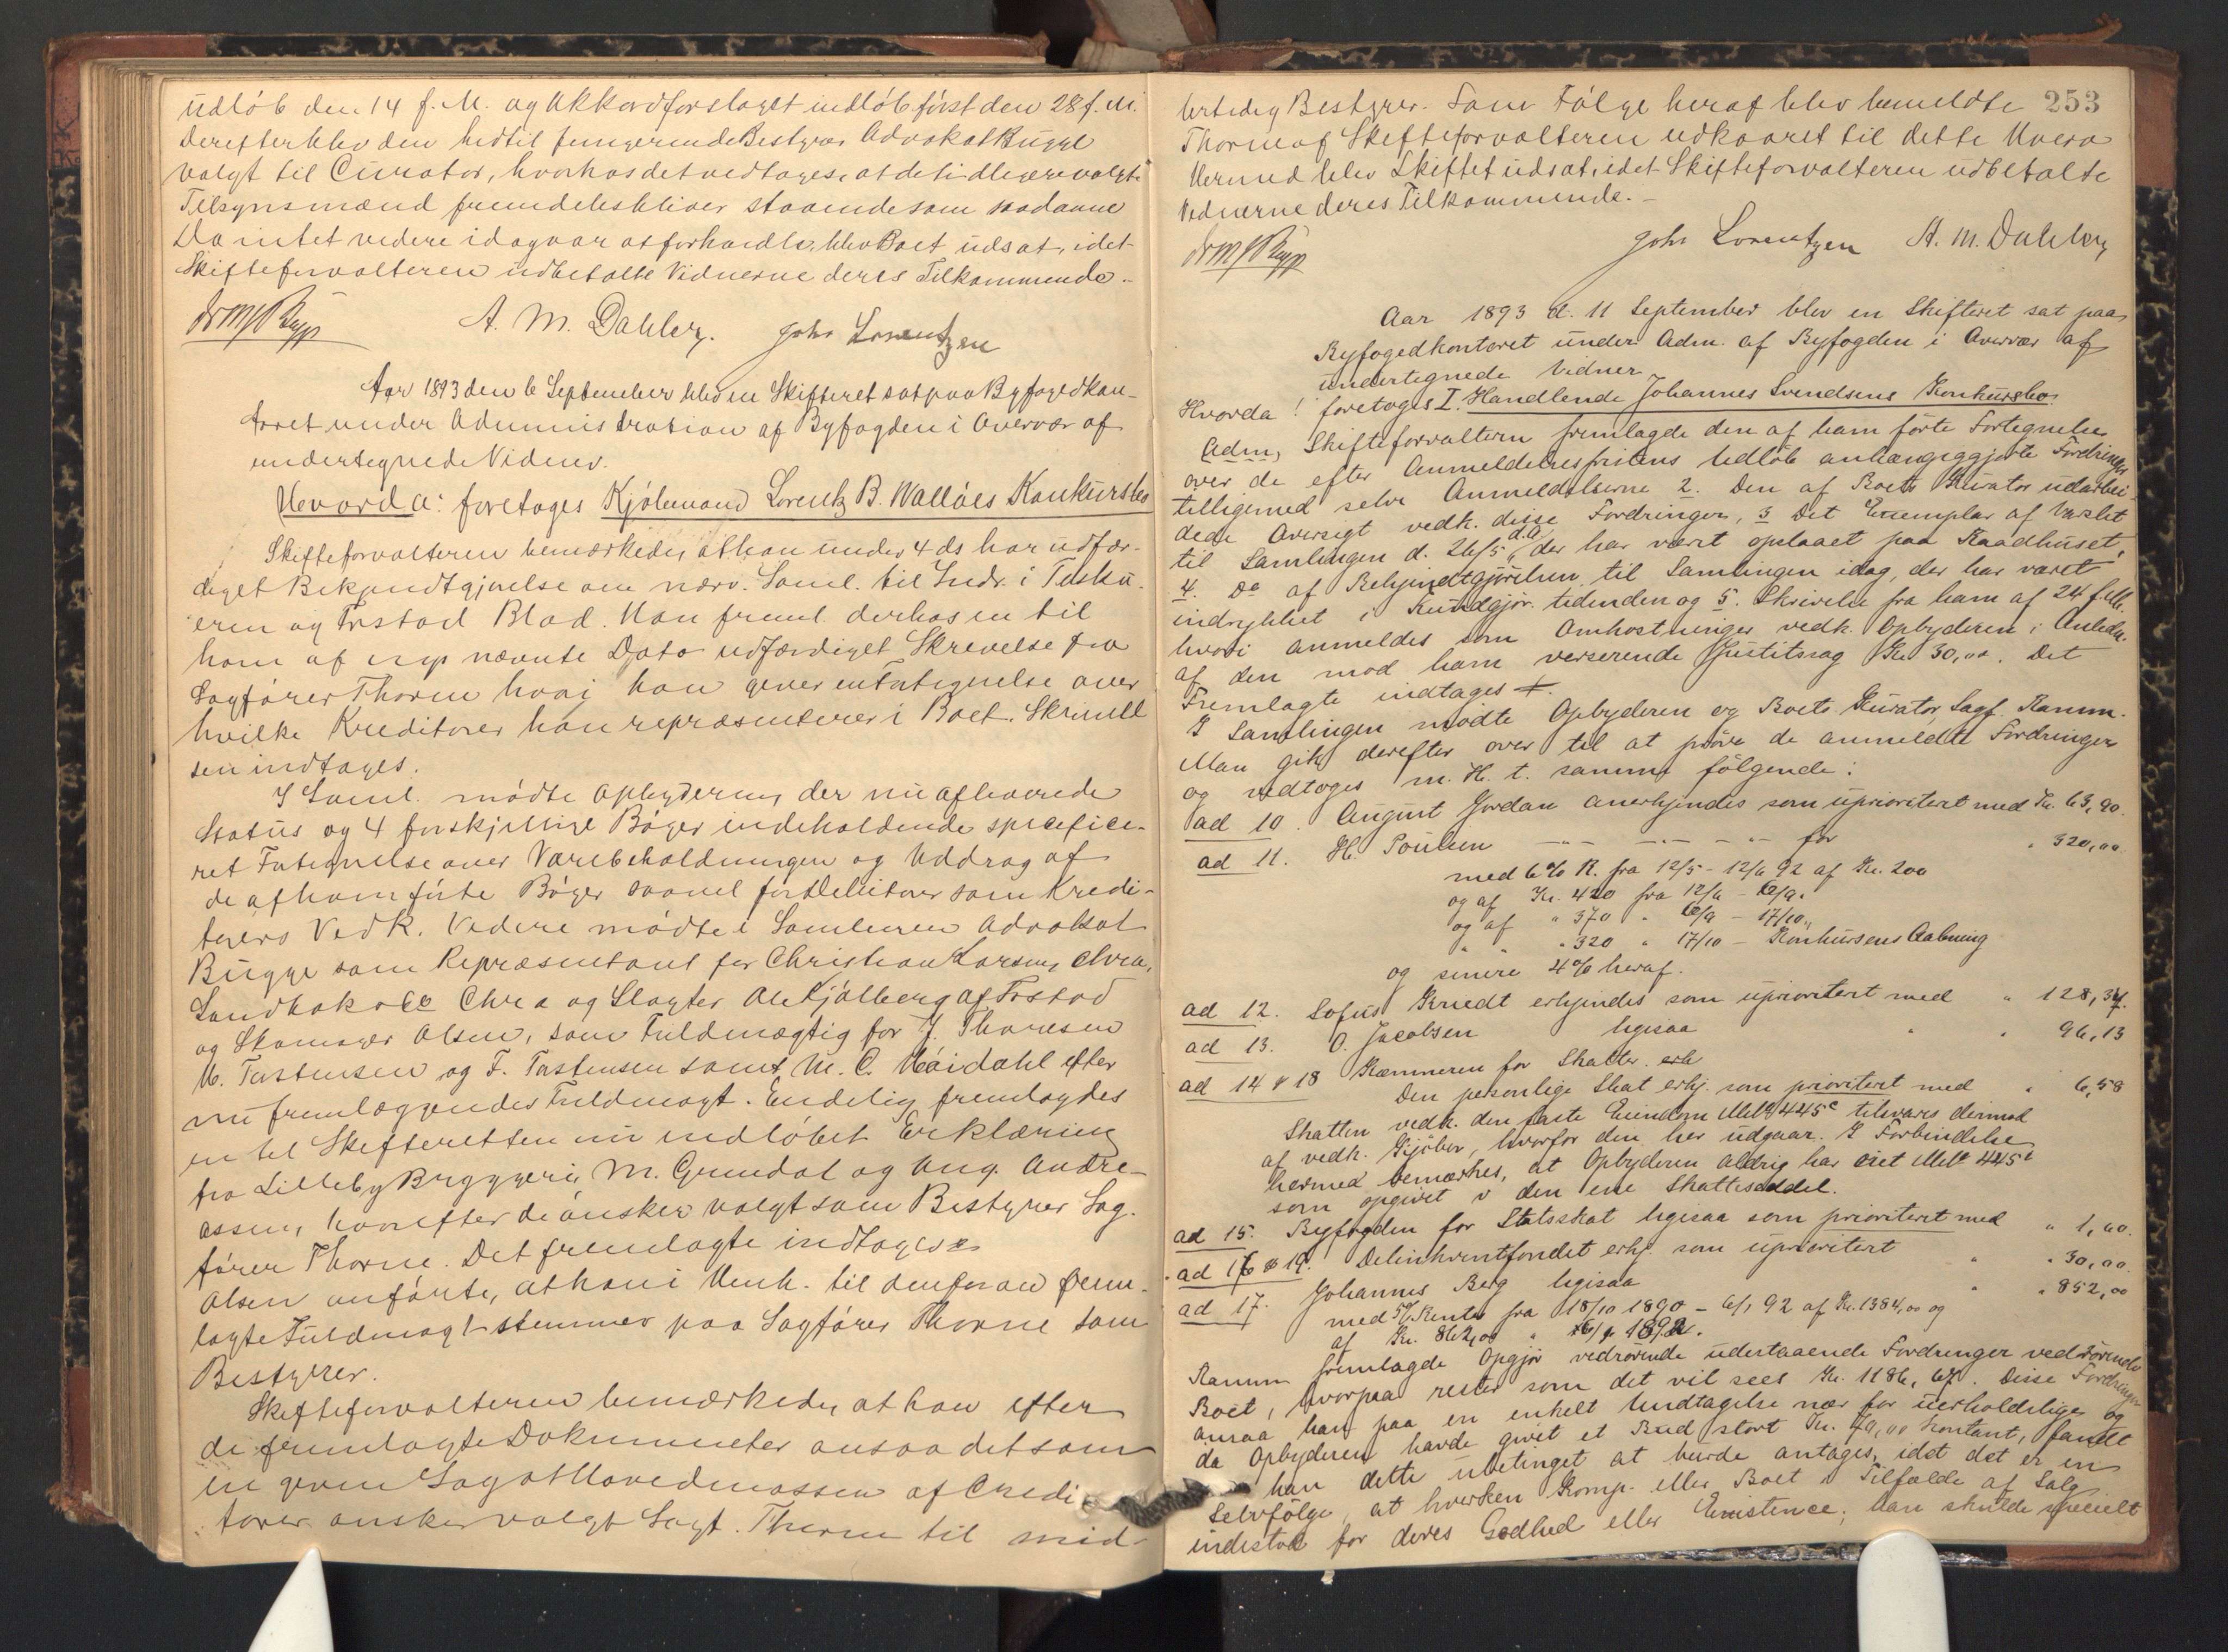 udløb den 14 f. M. og Akkordforslaget indløb først den 28 f. M.
Derefter blev den hidtil fungerende Bestyrer Advokat Bugge
valgt til Curator, hvorhos det vedtoges, at de tidligere valgte
Tilsynsmænd fremdeles bliver staaende som saadanne
Da intet videre idag var at forhandle, blev Boet udsat, idet
Skifteforvalteren udbetalte Vidnerne deres Tilkommende.-
A. M. Dahler. Johs Lorentzen
Aar 1893 den 6 September blev en Skifteret sat paa Byfogedkon-
toret under Administration af Byfogden i Overvær af
undertegnede Vidner.
Hvorda: foretoges Kjøbmand Lorentz B. Walløes Konkursbo
Skifteforvalteren bemærkede, at han under 4 ds har udfær-
diget Bekjendtgjørelse om nærv. Saml. til Indr. i Tusku-
eren og Trstad Blad. Han freml. derhos en til
ham af nævnte Dato udfærdiget Skrivelse fra
Sagfører Thorne hvori han giver en Fortegnelse over
hvilke Kreditorer han repræsenterer i Boet. Skrivel-
sen indtages.
I Saml. mødte Opbyderen, der nu afleverede
Status og 4 forskjellige Bøger indeholdende specifice-
ret Fortegnelse over Varebeholdningen og Uddrag af
de af ham førte Bøger saavel for Debitorer som Kredi-
torers Vedk. Videre mødte i Samlingen Advokat
Bugge som Repræsentant for Christian Larsen, Chra,
Sandbak & Co Chra og Slagter Ole Kjølberg af Frstad
og Skomager Olsen, som Fuldmægtig for J. Thoresen
M. Torstensen og F. Torstensen samt M. C. Høidahl efter
nu fremlæggendes Fuldmagt. Endelig fremlagdes
en til Skifteretten nu indløbet Erklæring
fra Lilleby Bryggeri, M. Grundal og Aug. Andre-
assen, hvorefter de ønsker valgt som Bestyrer Sag-
fører Thorne. Det fremlagte indtoges
Olsen anførte, at han i Henh. til den foran frem-
lagte Fuldmagt stemmer paa Sagfører Thorne som
Bestyrer.
Skifteforvalteren bemærkede, at han efter
de fremlagte Dokumenter ansaa det som
en given Sag at Hovedmassen af Credi-
torer ønsker valgt Sagf. Thorne til mid-
253
lertidig Bestyrer. Som Følge heraf blev bemeldte
Thorne af Skifteforvalteren udkaaret til dette Hverv
Hermed blev Skiftet udsat, idet Skifteforvalteren udbetalte
Vidnerne deres Tilkommende.-
Johs Lorentzen A. M. Dahler
Aar 1893 d. 11 September blev en Skifteret sat paa
Byfogedkontoret under Adm. af Byfogden i Overvær af
undertegnede Vidner
Hvorda! foretoges I. Handlende Johannes Svendsens Konkursbo.
Adm, Skifteforvaltern fremlagde den af ham førte Fortegnelse
over de efter Anmeldelsesfristens Udløb anhængiggjorte Fordringer
tilligemed selve Anmeldelserne 2. Den af Boets Kurator udarbei-
dede Oversigt vedk. disse Fordringer, 3 Det Exemplar af Varslet
til Samlingen d. 26/5 d.A. der har været opslaaet paa Raadhuset,
4. Do af Bekjendtgjørelsen til Samlingen idag, der har været
indrykket i Kundgjør. tidenden og 5. Skrivelse fra ham af 24 f. M.
hvori anmeldes som Omkostninger vedk. Opbyderen i Anledn.
af den mod ham verserende Justitssag Kr 30,00. Det
Fremlagte indtages
I Samlingen mødte Opbyderen og Boets Kurator, Sagf. Ramm.
Man gik derefter over til at prøve de anmeldte Fordringer
og vedtoges m. H. t. samme følgende:
ad 10. August Jordan anerkjendes som uprioritert med Kr. 63,90.
ad 11. H. Poulsen -"- -"- - "- for " 320,00
med 6 % R. fra 12/5 - 12/6 92 af Kr. 200
og af Kr. 420 fra 12/6 - 10/9.
og af " 370 " 10/9 - 17/10
" " " 320 " 17/10 - Konkursens Aabning
og senere 4 % heraf.
ad 12. Sofus Knedt erkjendes som uprioritert med " 128,34.
ad 13. O. Jacobsen ligesaa " " 96,13
ad 14 & 18 Kæmneren for Skatter. erk
Den personlige Skat erkj. som prioritert med " 6,58
Skatten vedk. den faste Eiendom MNo 445c tilsvares derimod
af vedk. Kjøber, hvorfor den her udgaar. I Forbindelse
hermed bemærkes, at Opbyderen aldrig har eiet MNo 445
som opgivet i den ene Skatteseddel.
ad 15. Byfogden for Statsskat ligesaa som prioriteret med " 1,60.
ad 16 & 19. Delinkventfondet erkj. som uprioritert " " 30,00.
ad 17. Johannes Berg ligesaa " " 852,00
med 5% Rente fra 18/10 1890 - 6/1 92 af Kr. 1384,00 og
af Kr. 862,00 " 1892.
Ramm fremlagde Opgjør vedrørende udestaaende Fordringer vedrørende
Boet, hvorpaa rester som det vil sees Kr. 1186,67. Disse Fordringer
ansaa han paa en enkelt Undtagelse nær for uerholdelige og
da Opbyderen havde givet et Bud stort Kr. kontant, fandt
han dette ubetinget at burde antages, idet det er en
Selvfølge, at hverken Komp. eller Boet i Tilfælde af Salg
indestod for deres Godhed eller Existence; han skulde specielt